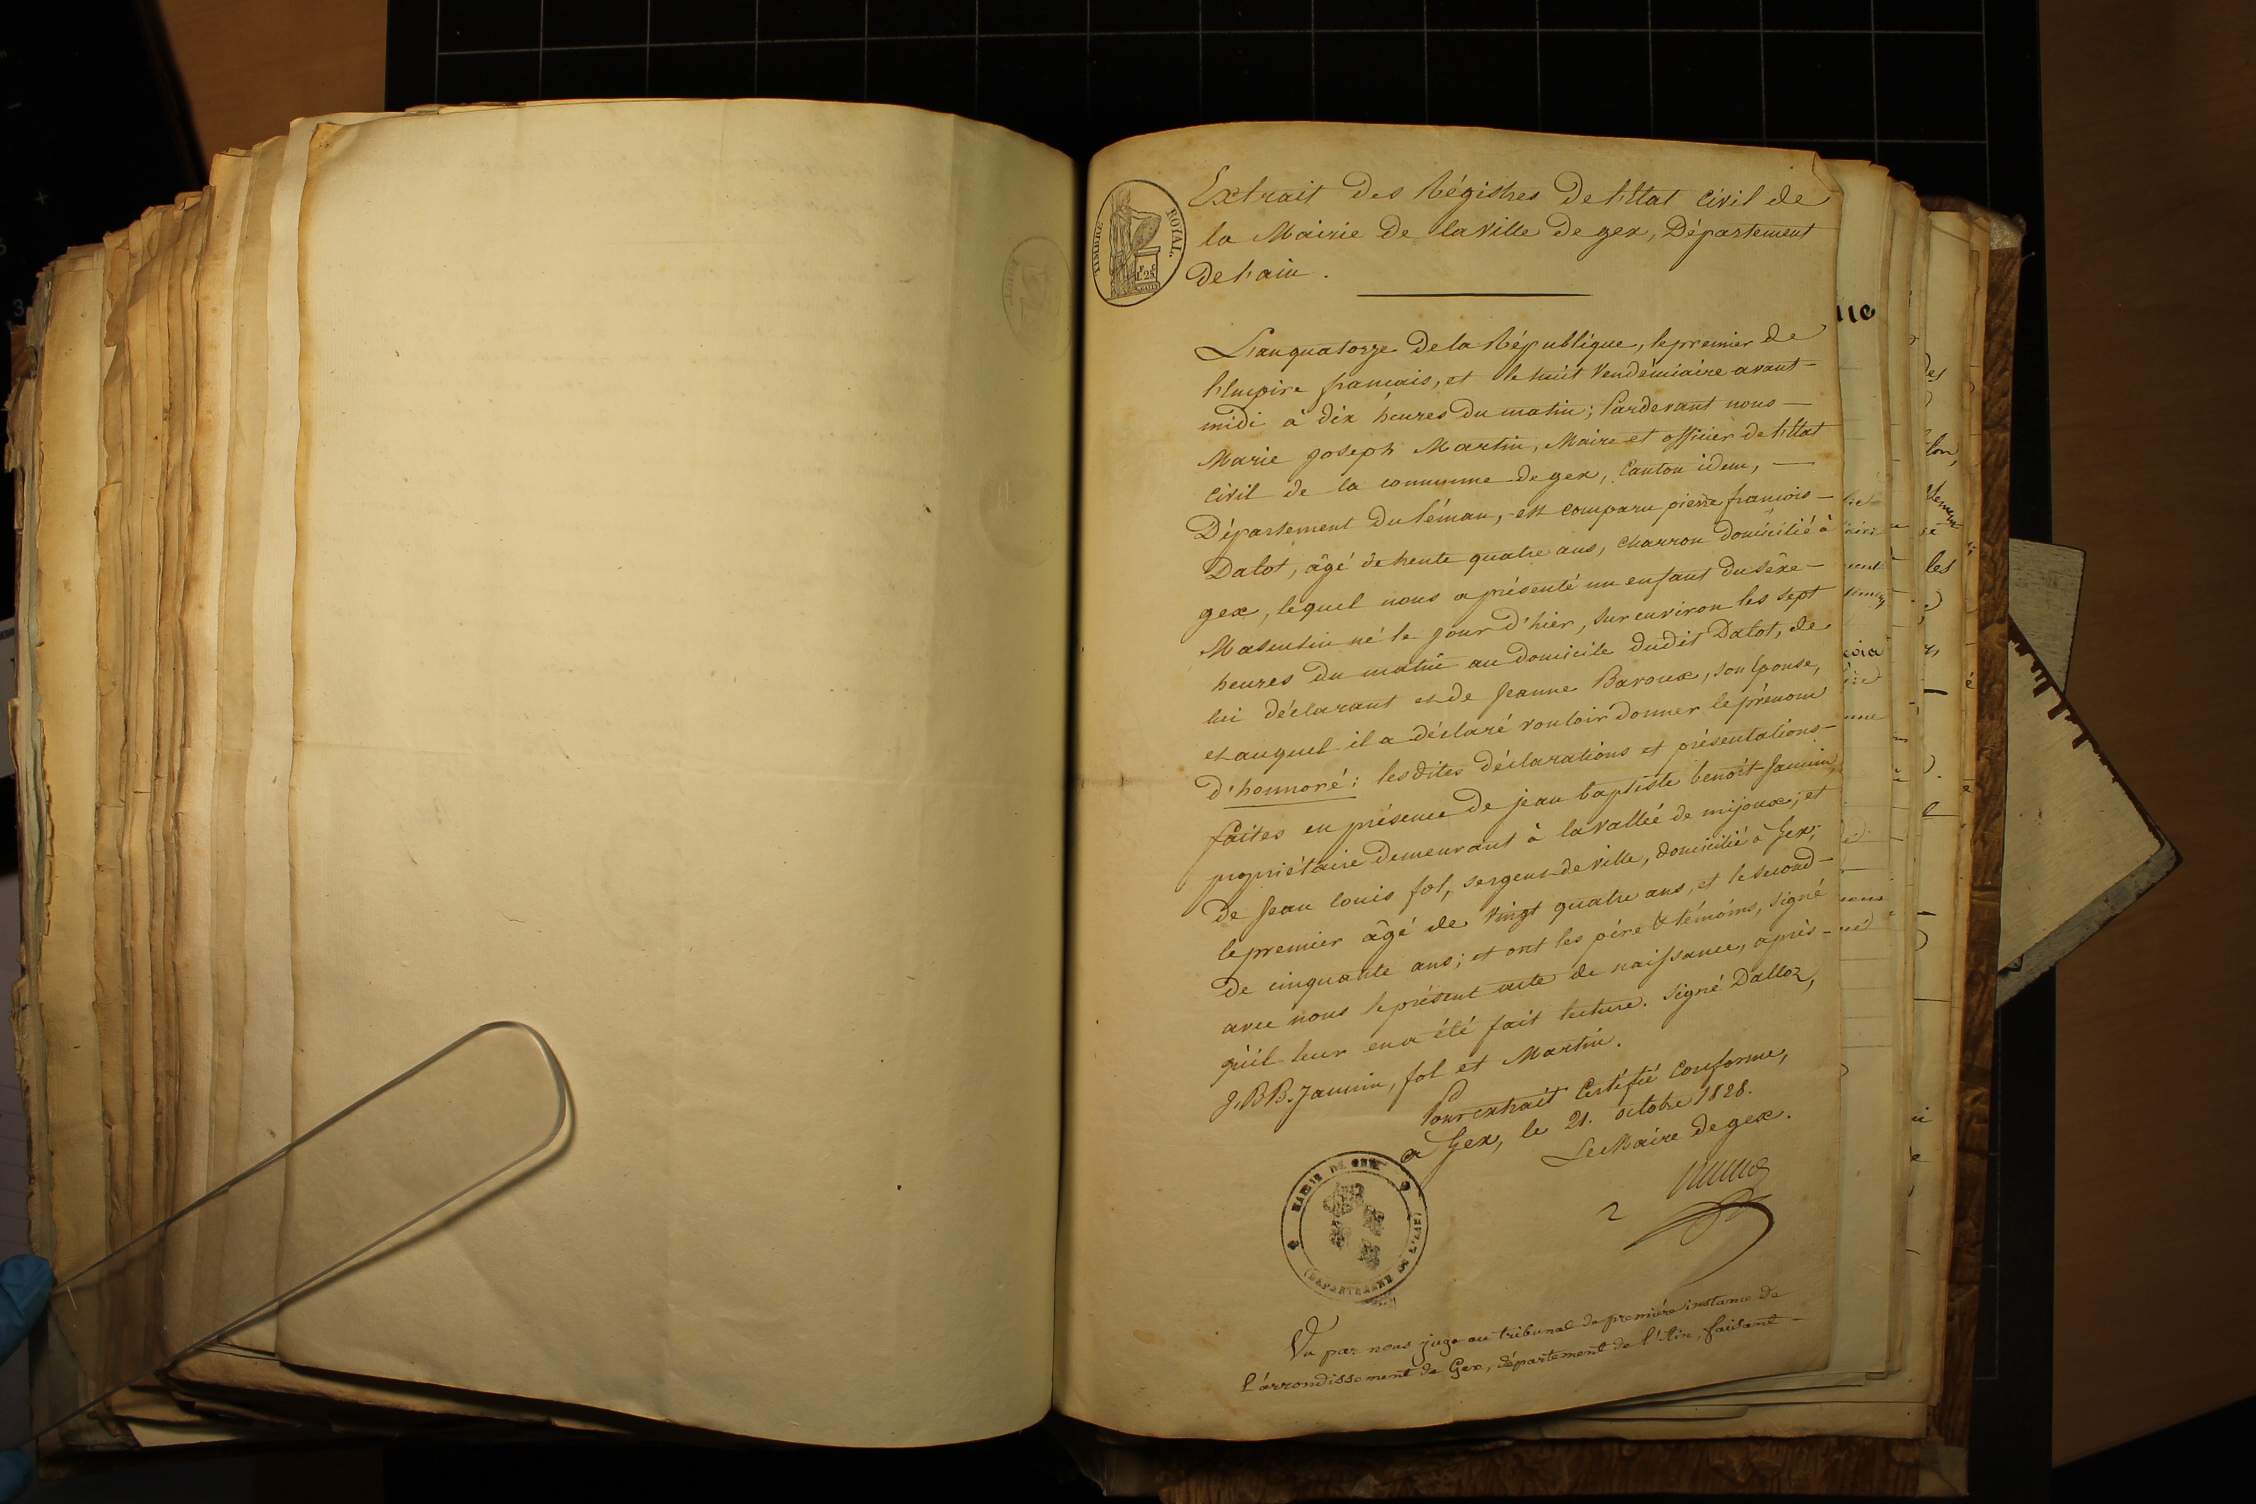 TIMBRE ROYAL.
Extrait des Régistres de l'Etat civil de
la Mairie de la ville de gex, Département
de l'ain.
L'an quatorze de la République, le premier de
l'Empire francais, et le huit Vendémiaire avant-
midi à dix heures du matin; Pardevant nous
Marie Joseph Martin, Maire et officier de l'Etat
civil de la commune de gex, Canton idem,
Département du léman, est comparu pierre francois
Dalot, âgé de trente quatre ans, charron domicilié à
gex, lequel nous a présenté un enfant du sêxe
Masculin né le jour d'hier, sur environ les sept
heures du matin au domicile dudit Dalot, de
lui déclarant et de Jeanne Baroux, son Epouse,
et auquel il a déclaré vouloir donner le prénom
d'honnoré: lesdites déclarations et présentations
faites en présence de jean baptiste benoît Jaunin,
propriétaire demeurant à la vallée de mijoux; et
de Jean louis fol, sergent de ville, domicilié à Gex;
le premier âgé de vingt quatre ans, et le second
de cinquante ans; et ont les pére & témoins, signé
avec nous le présent acte de naissance, après
qu'il leur en a été fait lecture. signé Dalloz,
J.B.B. Jaunin, fol et Martin.
Pour extrait Certifié conforme,
a Gex, le 21. octobre 1828.
Le Maire de gex.
MAIRIE DE GEX
(DÉPARTEMENT DE L'AIN)
Vu par nous juge au tribunal de première instance de
l'arrondissement de Gex, département de l'Ain, faisant